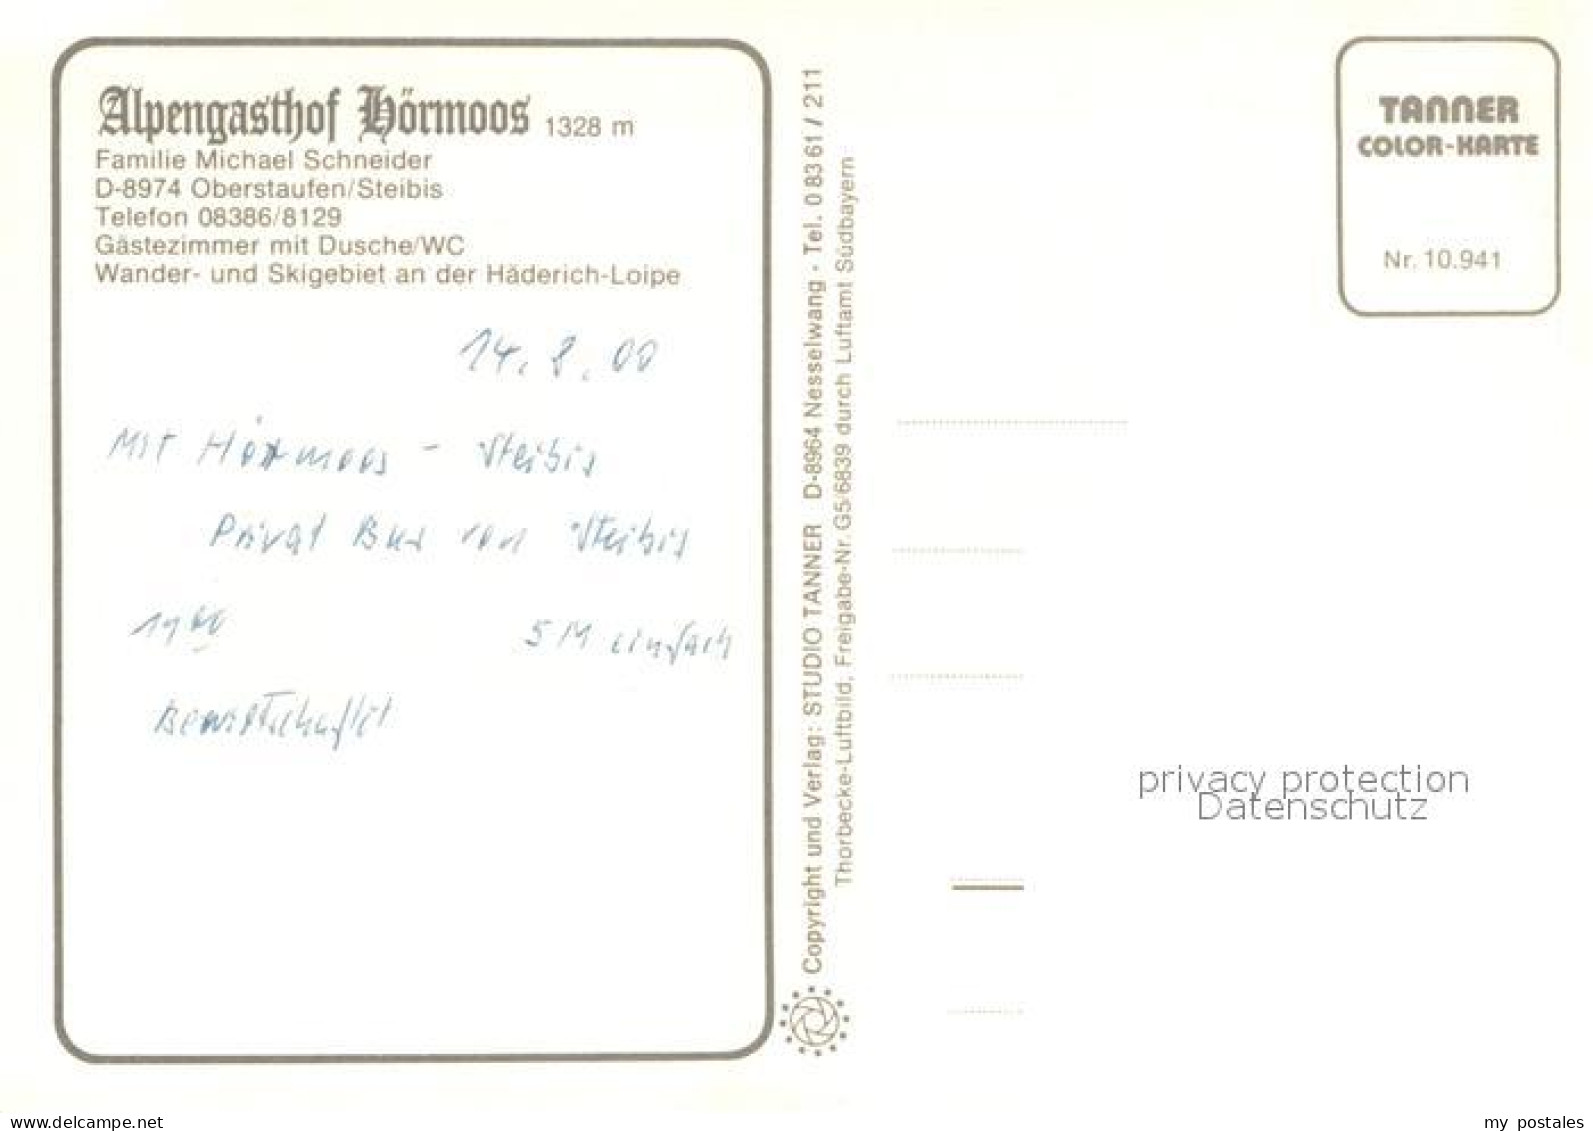 Alpengasthof Hörmoos 1328 m
Familie Michael Schneider
D-8974 Oberstaufen/Steibis
Telefon 08386/8129
Gästezimmer mit Dusche/WC
Wander- und Skigebiet an der Häderich-Loipe
14. 8. 00
Mit Hörmoos - Steibis
Privat Bus von Steibis
5 M einfach
Bewirtschaftet
Copyright und Verlag: STUDIO TANNER D-8964 Nesselwang · Tel. 0 83 61 / 211
Thorbecke-Luftbild, Freigabe-Nr. G5/6839 durch Luftamt Südbayern
TANNER
COLOR-KARTE
Nr. 10.941
privacy protection
Datenschutz
www.delcampe.net
my_postales